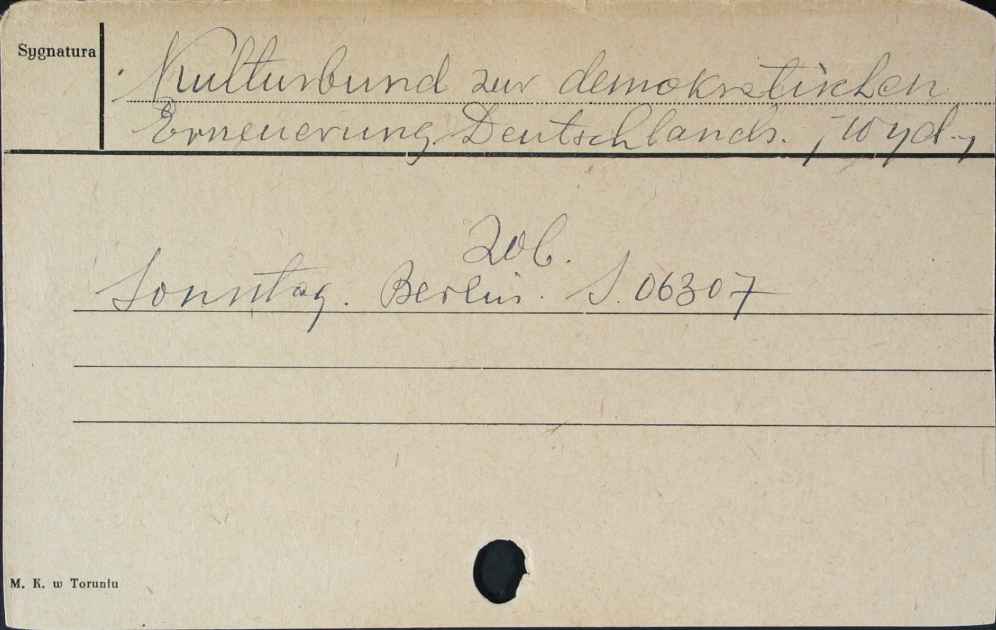 Sygnatura
Kulturbund zur demokratischen
Erneuerung Deutschlands. /wyd./
Zob.
Sonntag. Berlin. S. 06307
M. K. w Toruniu